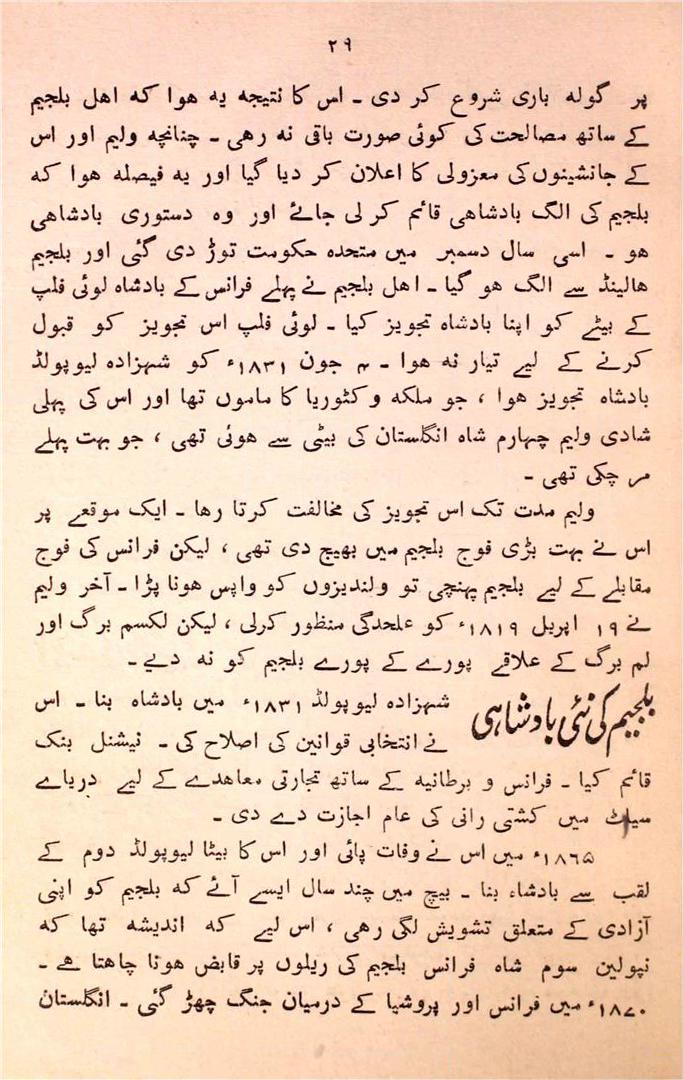 ۲۹
پر گولہ باری شروع کر دی ۔ اس کا نتیجہ یہ ہوا کہ اہل بلجیم
کے ساتھ مصالحت کی کوئی صورت باقی نہ رہی ۔ چنانچہ ولیم اور اس
کے جانشینوں کی معزولی کا اعلان کر دیا گیا اور یہ فیصلہ ہوا کہ
بلجیم کی الگ بادشاہی قائم کر لی جائے اور وہ دستوری بادشاہی
ہو ۔ اسی سال دسمبر میں متحدہ حکومت توڑ دی گئی اور بلجیم
ہالینڈ سے الگ ہو گیا ۔ اہل بلجیم نے پہلے فرانس کے بادشاہ لوئی فلپ
کے بیٹے کو اپنا بادشاہ تجویز کیا ۔ لوئی فلپ اس تجویز کو قبول
کرنے کے لیے تیار نہ ہوا ۔ ۴ جون ۱۸۳۱ء کو شہزادہ لیوپولڈ
بادشاہ تجویز ہوا ، جو ملکہ وکٹوریا کا ماموں تھا اور اس کی پہلی
شادی ولیم چہارم شاہ انگلستان کی بیٹی سے ہوئی تھی ، جو بہت پہلے
مر چکی تھی ۔
ولیم مدت تک اس تجویز کی مخالفت کرتا رہا ۔ ایک موقعے پر
اس نے بہت بڑی فوج بلجیم میں بھیج دی تھی ، لیکن فرانس کی فوج
مقابلے کے لیے بلجیم پہنچی تو ولندیزوں کو واپس ہونا پڑا ۔ آخر ولیم
نے ۱۹ اپریل ۱۸۱۹ء کو علحدگی منظور کرلی ، لیکن لکسم برگ اور
لم برگ کے علاقے پورے کے پورے بلجیم کو نہ دیے ۔
بلجیم کی نئی بادشاہی
شہزادہ لیوپولڈ ۱۸۳۱ء میں بادشاہ بنا ۔ اس
نے انتخابی قوانین کی اصلاح کی ۔ نیشنل بنک
قائم کیا ۔ فرانس و برطانیہ کے ساتھ تجارتی معاہدے کے لیے دریاے
میں کشتی رانی کی عام اجازت دے دی ۔
۱۸۶۵ء میں اس نے وفات پائی اور اس کا بیٹا لیوپولڈ دوم کے
لقب سے بادشاہ بنا ۔ بیچ میں چند سال ایسے آئے کہ بلجیم کو اپنی
آزادی کے متعلق تشویش لگی رہی ، اس لیے کہ اندیشہ تھا کہ
نپولین سوم شاہ فرانس بلجیم کی ریلوں پر قابض ہونا چاہتا ہے ۔
۱۸۷۰ء میں فرانس اور پروشیا کے درمیان جنگ چھڑ گئی ۔ انگلستان